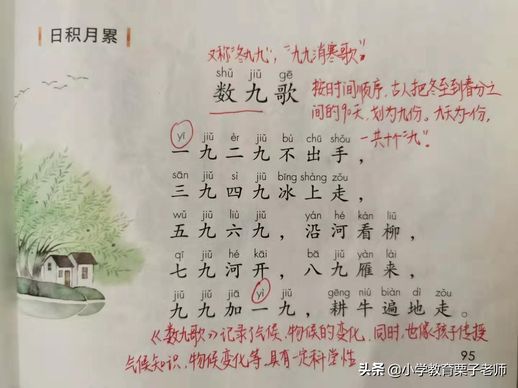 日积月累
又称"冬九九","九九消寒歌"。
shǔ jiǔ gē
数九歌
按时间顺序,古人把冬至到春分之
间的90天,划为九份。九天为一份,
一共十个"九"。
yī jiǔ èr jiǔ bù chū shǒu
一九二九不出手,
sān jiǔ sì jiǔ bīng shàng zǒu
三九四九冰上走,
wǔ jiǔ liù jiǔ yán hé kàn liǔ
五九六九,沿河看柳,
qī jiǔ hé kāi bā jiǔ yàn lái
七九河开,八九雁来,
jiǔ jiǔ jiā yì jiǔ gēng niú biàn dì zǒu
九九加一九,耕牛遍地走。
《数九歌》记录了气候、物候的变化,同时,也像孩子传授
气候知识,物候变化等,具有一定科学性
95
头条 @小学教育栗子老师